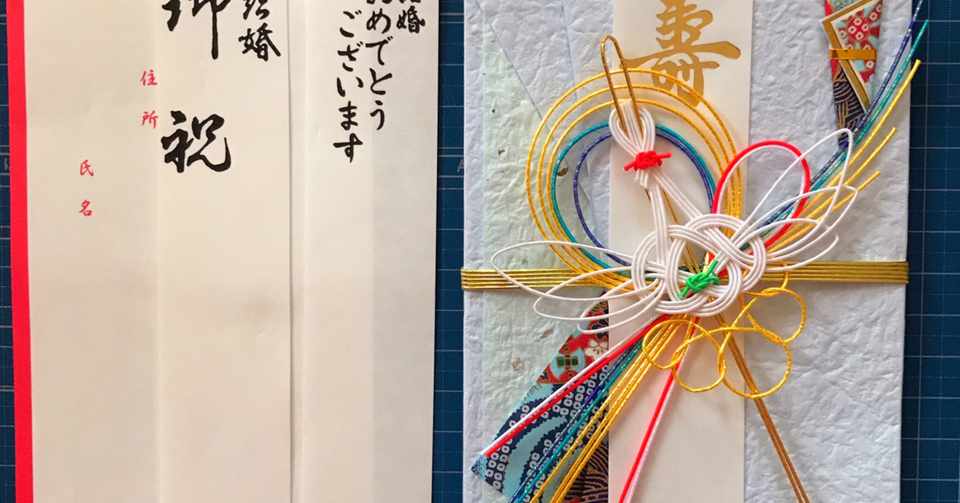 寿
結婚
おめでとう
ございます
結婚
御祝
住所
氏名